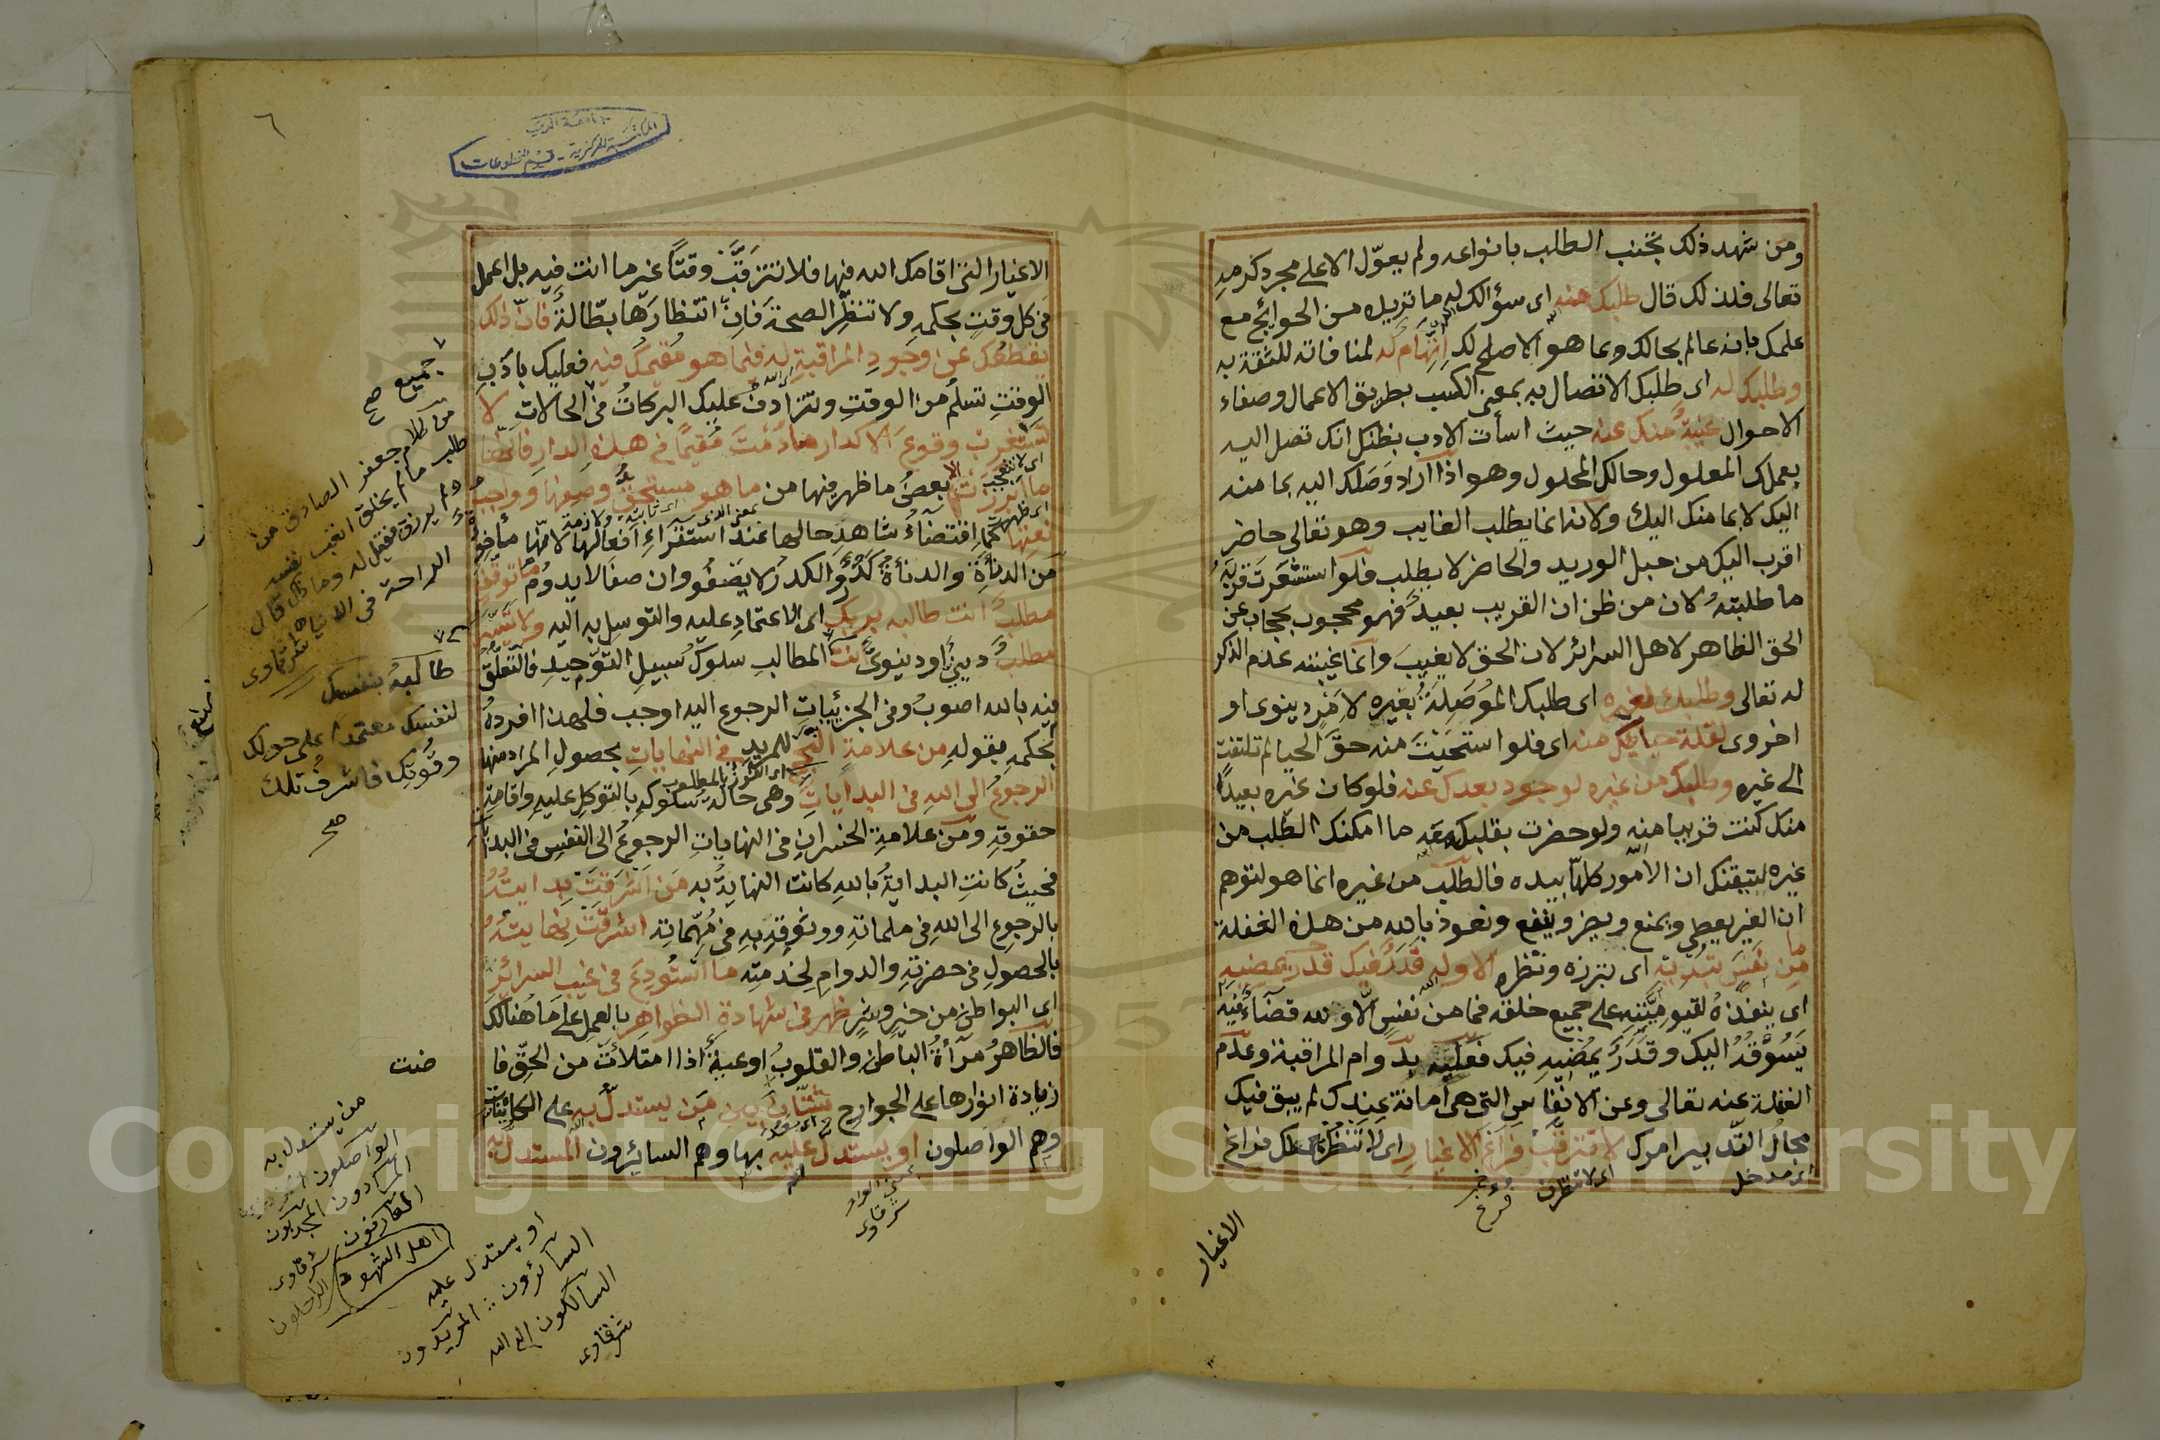 ومن شهد ذلك تجنب الطلب بانواعه ولم يعوّل الا على مجرد كرمه
تعالى فلذلك قال طلبك منه اى سؤالك له ما تريده من الحوائج مع
علمك بانه عالم بحالك وبما هو الاصلح لك اتهام له لمنافاته للثقة به
وطلبك له اى طلبك الاتصال به بمعنى الكسب بطريق الاعمال وصفاء
الاحوال غيبة منك عنه حيث اسأت الادب بظنك انك تصل اليه
بعملك المعلول وحالك المحلول وهو اذا اراد وصلك اليه بما منه
اليك لا بما منك اليك ولانه انما يطلب الغايب وهو تعالى حاضر
اقرب اليك من حبل الوريد والحاضر لا يطلب فلو استشعرت قربه
ما طلبته لان من ظن ان القريب بعيد فهو محجوب بحجاب عن
الحق الظاهر لاهل السرائر لان الحق لا يغيب وانما غيبته عدم الذكر
له تعالى وطلبك لغيره اى طلبك الموصلة بغيره لامر دينوى او
اخروى لقلة حيائك منه اى فلو استحيت منه حق الحيا لم تلتفت
الى غيره وطلبك من غيره لوجود بعدك عنه فلو كان غيره بعيدًا
منك كنت قريبا منه ولو حضرت بقلبك معه ما امكنك الطلب من
غيره لتيقنك ان الامور كلها بيده فالطلب من غيره انما هو لتوهم
ان الغير يعطى ويمنع ويضر وينفع ونعوذ بالله من هذه الغفلة
ما من نفس تبديه اى تبرزه وتظهره الا وله قدر فيك قدر يمضيه
اى ينفذه لقيوميته على جميع خلقه فما من نفس الا ولله قضاء فيه
يسوقه اليك وقدر يمضيه فيك فعليك بدوام المراقبة وعدم
الغفلة عنه تعالى وعن الانفاس التى هى امانة عندك لم يبق فيك
مجال التدبير امرك لا تترقب فراغ الاغيار اى لا تنتظر فراغ
اى لا تنتظرن
الاغيار
٦
المكتبة المركزية - قسم المخطوطات
الاغيار التى اقامك الله فيها فلا تترقب وقتًا غير ما انت فيه بل اعمل
فى كل وقت بحكمه ولا تنتظر الصحة فان انتظارها بطالة فان ذلك
يقطعك عن وجود المراقبة له فيما هو مقيمك فيه فعليك بادب
الوقت تسلم من الوقت وتترادف عليك البركات فى الحالات لا
تستغرب وقوع الاكدار ما دمت مقيمًا فى هذه الدار فانها
ما ابرزت الا بعض ما ظهر فيها من ما هو مستحق وصفها وواجب
نعتها اقتضاء شاهد حالها عند استقراء افعالها لانها مأخوذة
من الدنأة والدنأة كدر والكدر لا يصفو وان صفا لا يدوم ما توقف
مطلب انت طالبه بربك اى الاعتماد عليه والتوسل به اليه ولا تيسر
مطلب دينى او دينوى المطالب سلوك سبيل التوحيد فالتعلق
فيه بالله اصوب وفى الجزئيات الرجوع اليه اوجب فلهذا افرده
بحكمه بقوله من علامة النجح للمريد فى النهايات بحصول المراد منها
الرجوع الى الله فى البدايات وهى حالة سلوكه بالتوكل عليه واقامة
حقوقه ومن علامة الخسران فى النهايات الرجوع الى النفس فى البدا
فحيث كانت البداية بالله كانت النهاية به من اشرقت بدايته
بالرجوع الى الله فى ملماته ووثوقه به فى مهماته اشرقت نهايته
بالحصول فى حضرته والدوام لخدمته ما استودع فى غيب السرائر
اى البواطن من خير وشر ظهر فى شهادة الظواهر بالعمل على ما هنالك
فالظاهر مرآة الباطن والقلوب اوعية اذا امتلأت من الحق فا
زيادة انوارها على الجوارح شتان بين من يستدل به على الكائنات
وهم الواصلون او يستدل عليه بها وهم السائرون المستدل به
جميع صح
من كلام جعفر الصادق من
طلب مالم يخلق اتعب نفسه
ولم يرزق فقيل له وما ذاك قال
الراحة فى الدنيا شرقاوى
طالبه بنفسك
لنفسك معتمدا على حولك
وقوتك فاشرف تلك
صح
من يستدل به
الواصلون
المرادون المجذبون
العارفون
شرقاوى
اهل الشهود
او يستدل عليه
السائرون المريدون
السالكون الى الله
شرقاوى
شرقاوى
Copyright © King Saud University